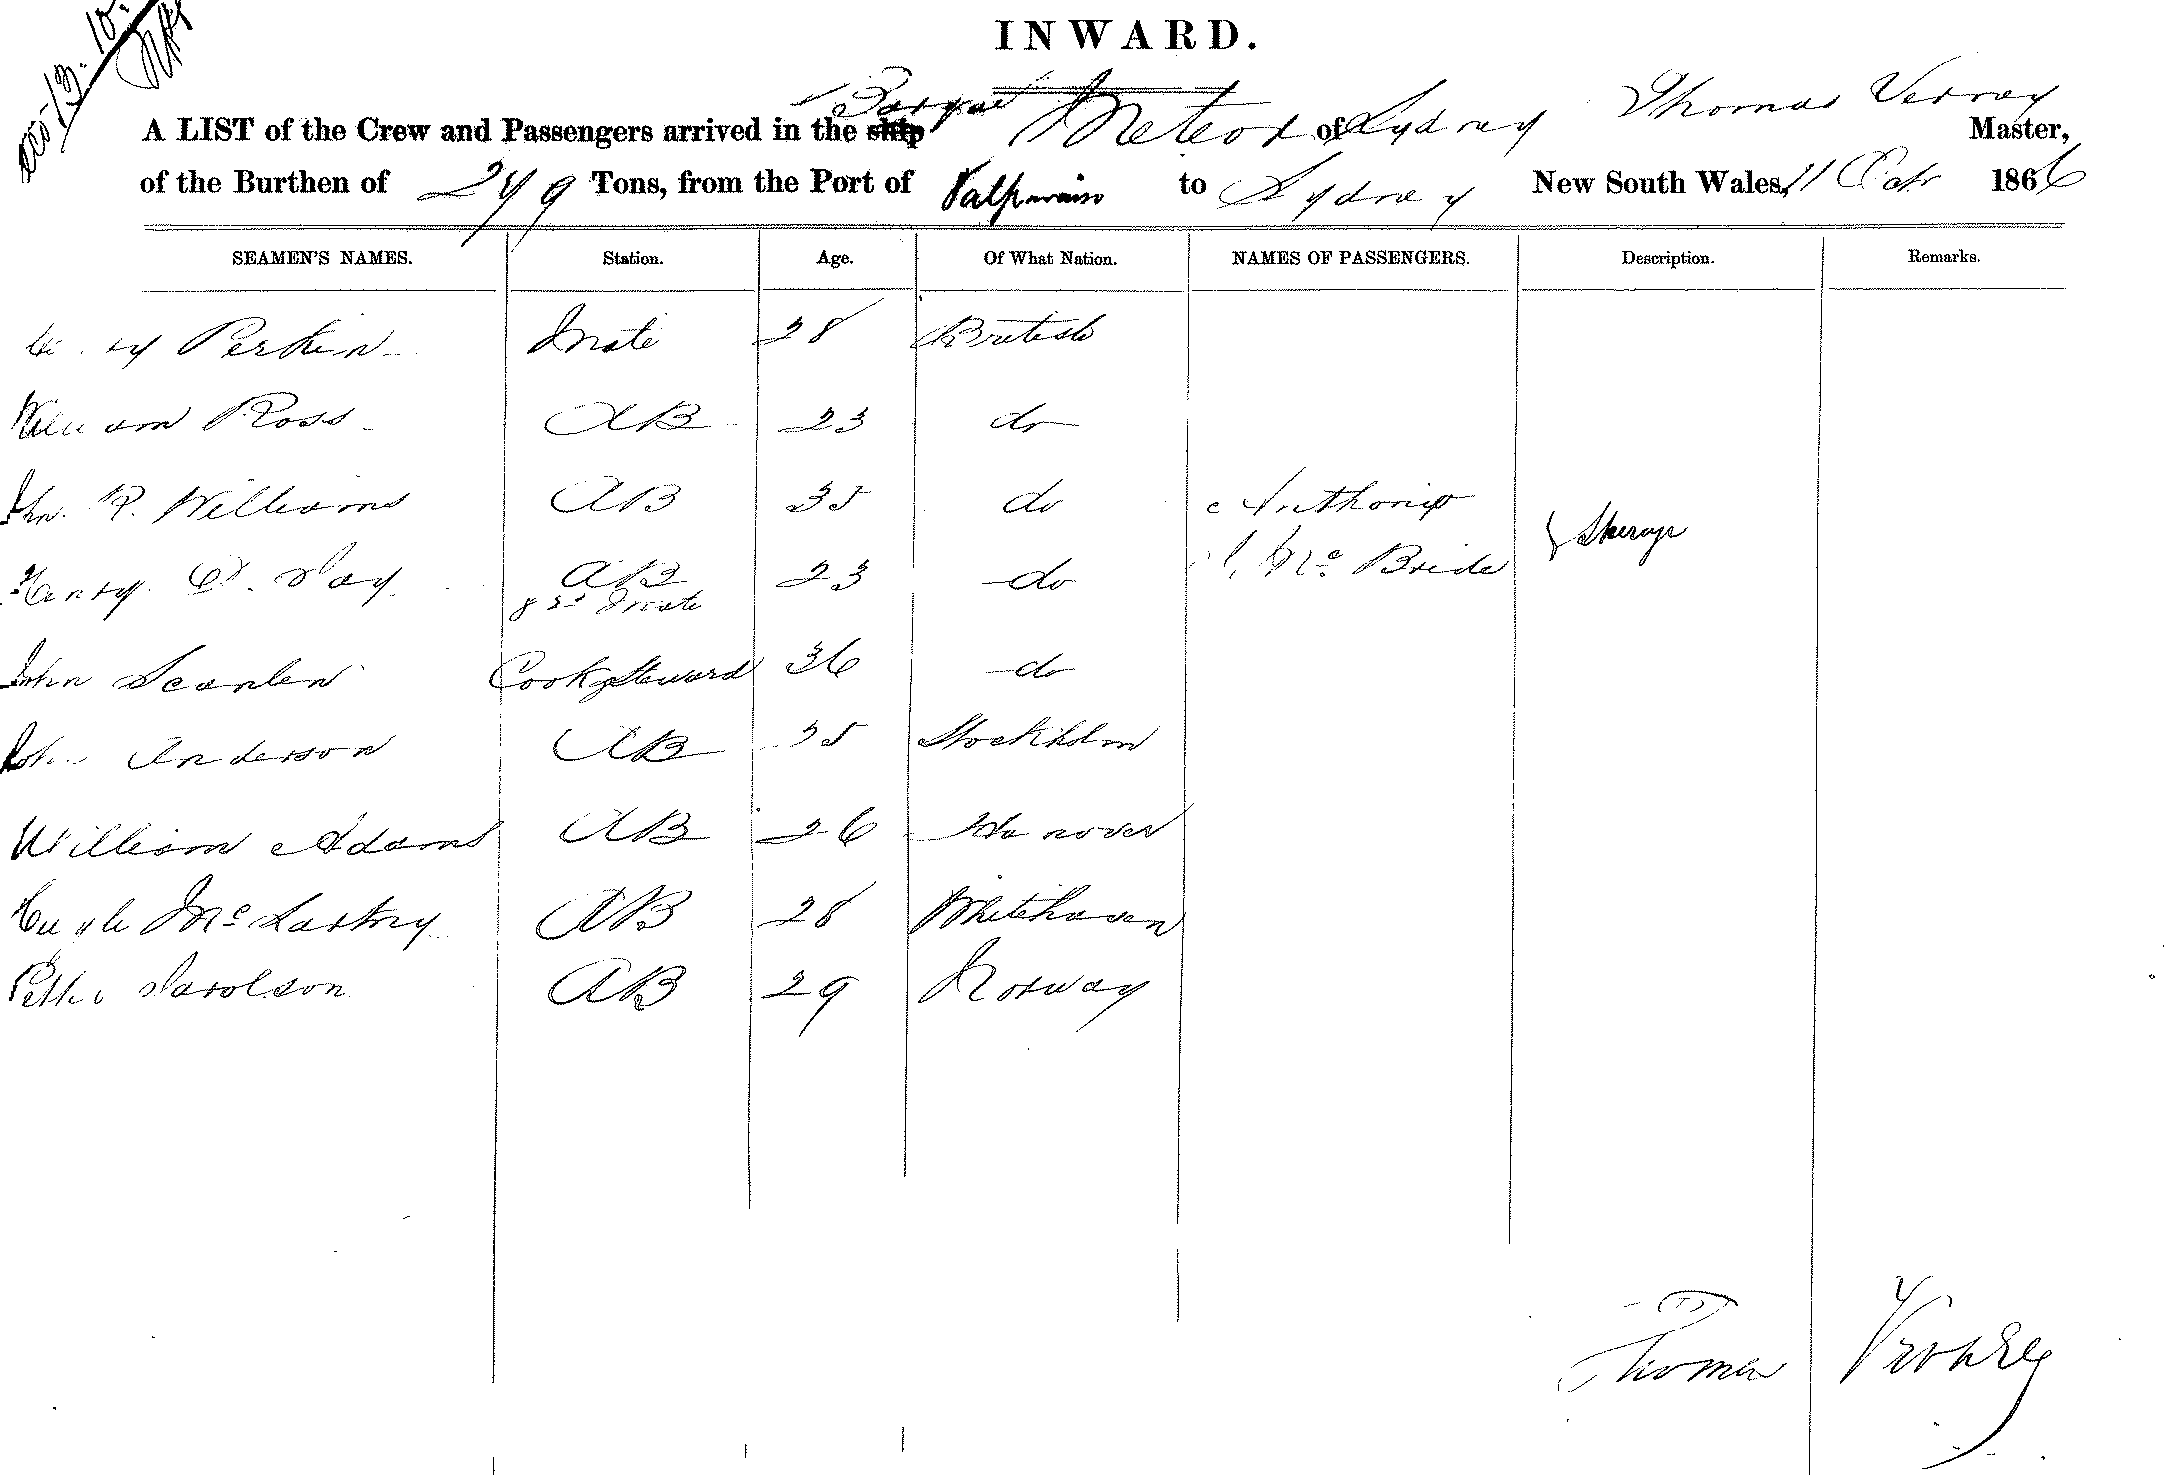 INWARD.
A LIST of the Crew and Passengers arrived in the ship Barque Meteor of Sydney Thomas Master,
of the Burthen of 249 Tons, from the Port of Valparaiso to Sydney New South Wales, 11 Octr 1866
SEAMEN'S NAMES. Station. Age. Of What Nation. NAMES OF PASSENGERS. Description. Remarks.
Perkin Mate 28 British
William Ross AB 23 do
Jhn. R. Williams AB 35 do Anthony
Henry Day AB 23 do Mc Bride Steerage
& 2d Mate
John Scanlen Cook & Steward 36 do
John Anderson AB 35 Stockholm
William Adams AB 26 Hanover
Hugh Mc AB 28 Whitehaven
AB 29 Norway
Thomas